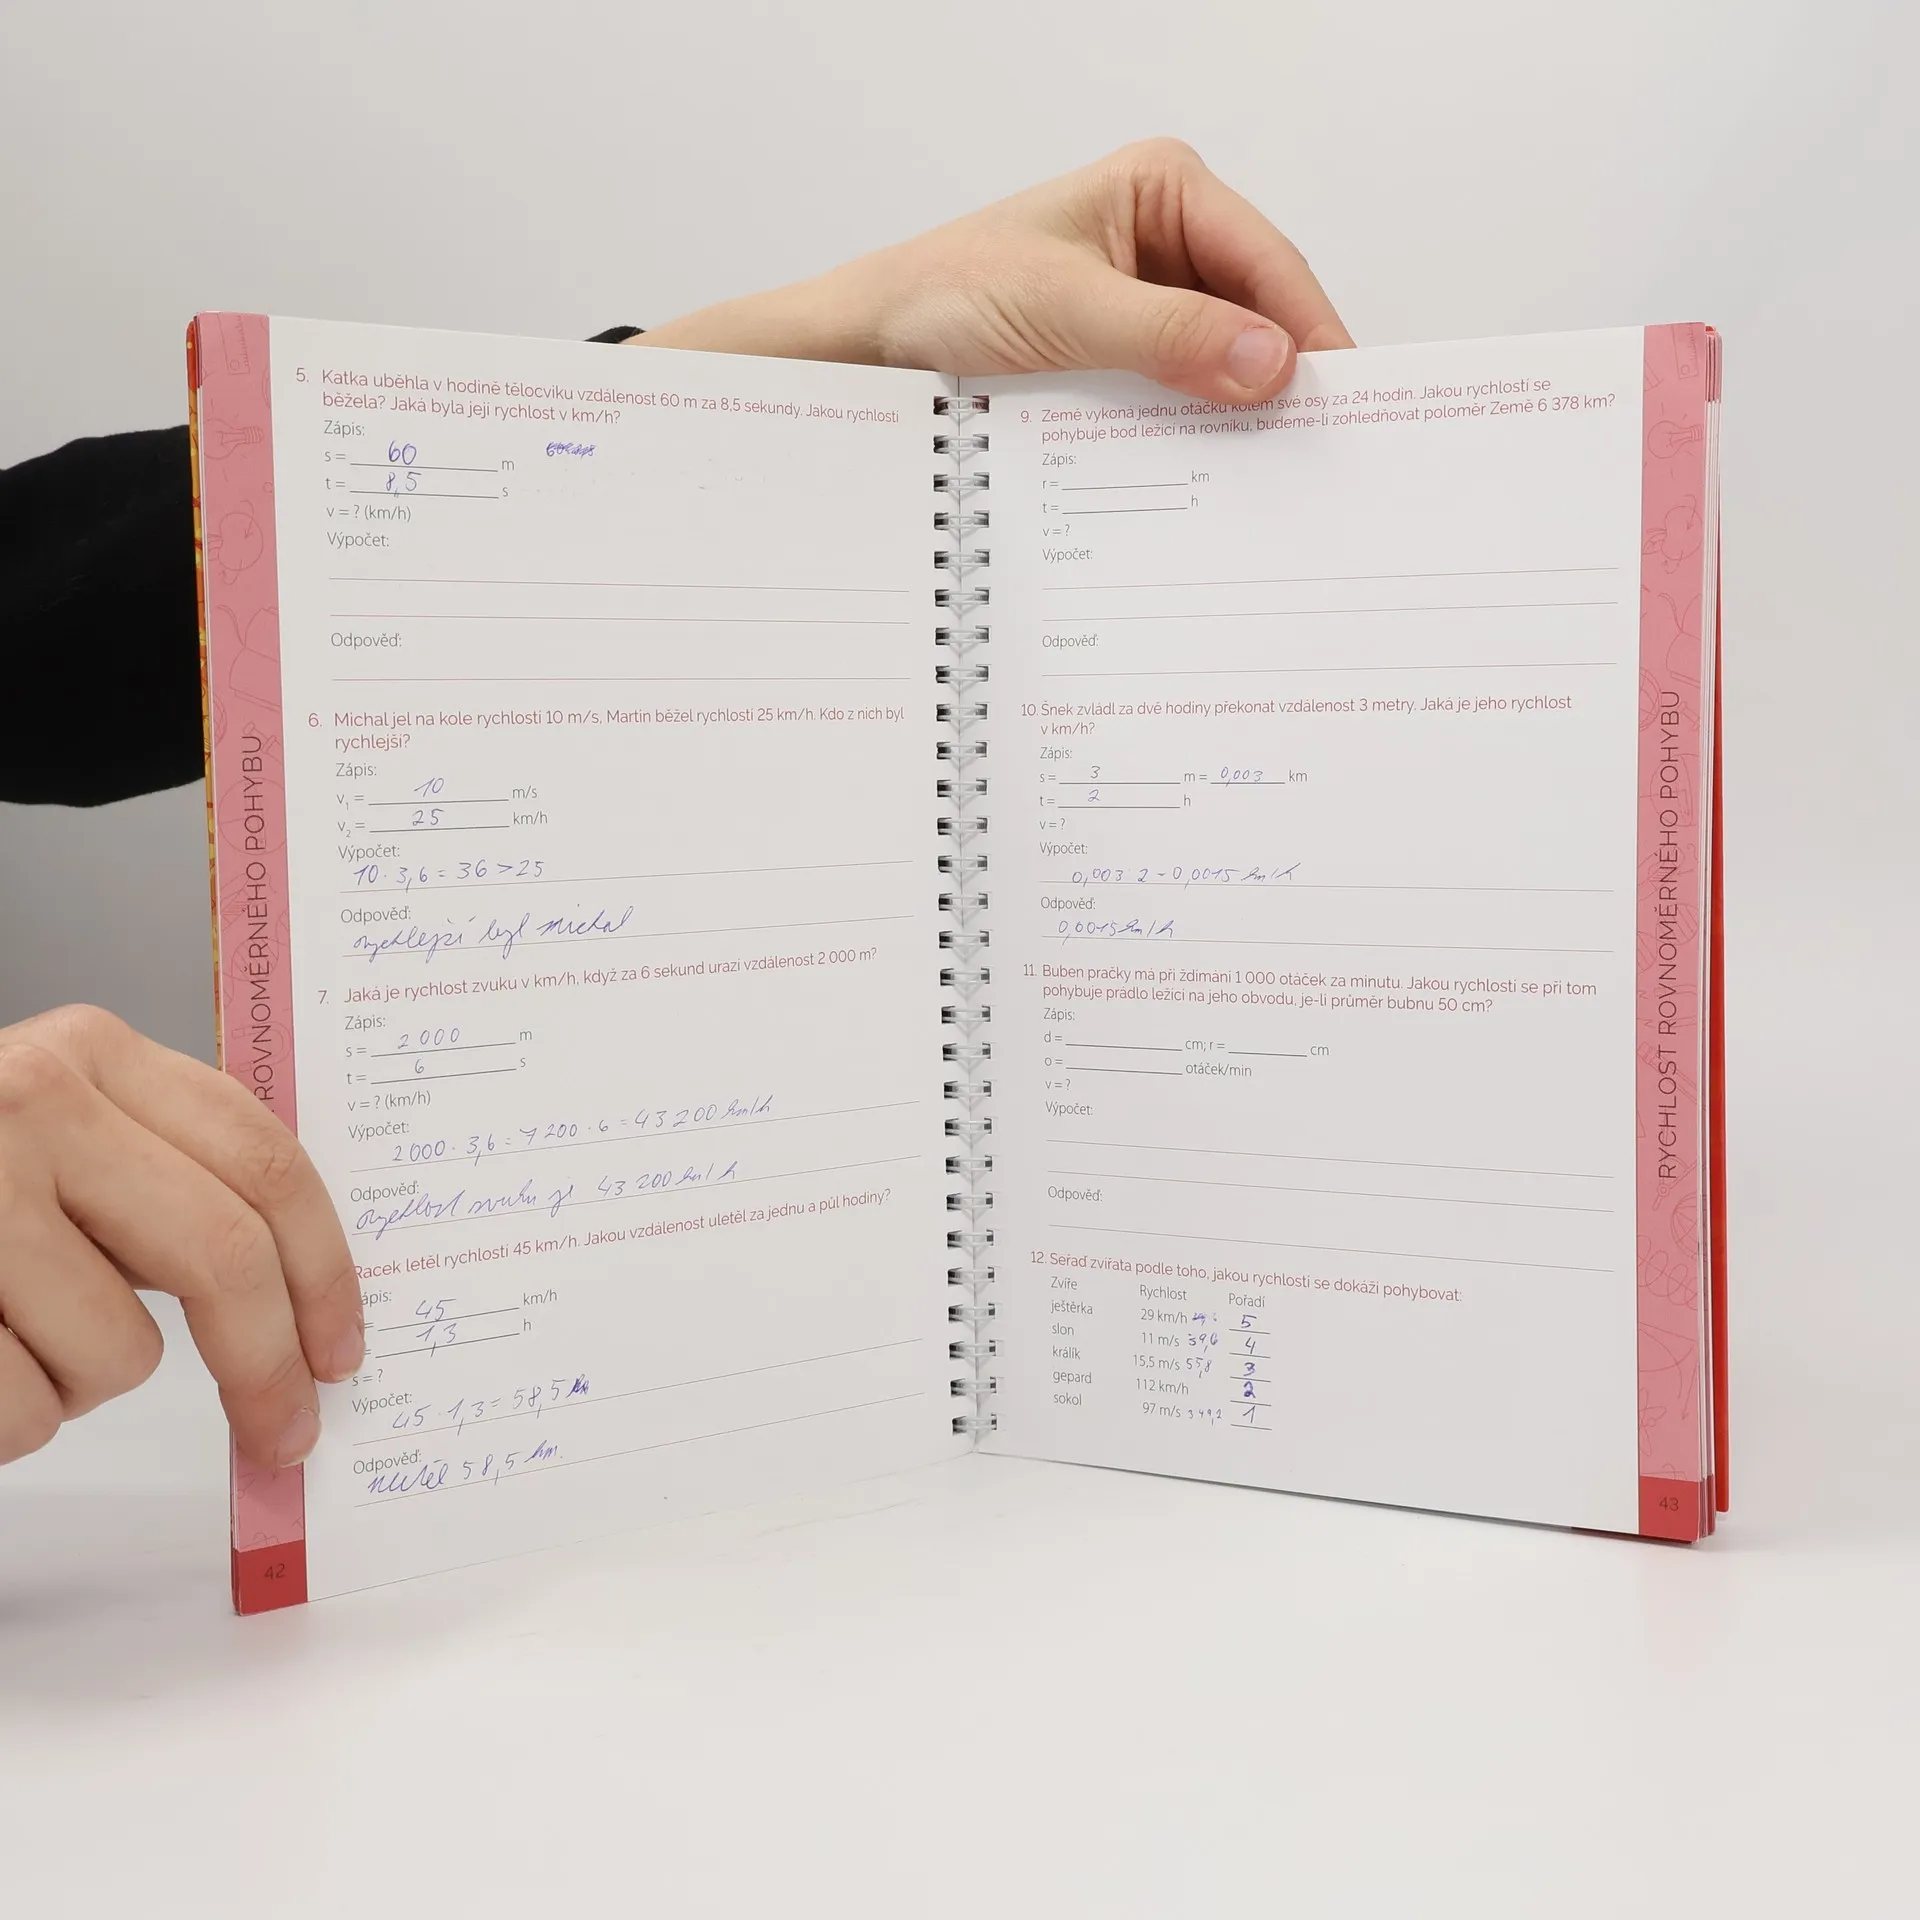 5. Katka uběhla v hodině tělocviku vzdálenost 60 m za 8,5 sekundy. Jakou rychlostí
běžela? Jaká byla její rychlost v km/h?
Zápis:
s = 60 m
t = 8,5 s
v = ? (km/h)
Výpočet:
Odpověď:
6. Michal jel na kole rychlostí 10 m/s, Martin běžel rychlostí 25 km/h. Kdo z nich byl
rychlejší?
Zápis:
v₁ = 10 m/s
v₂ = 25 km/h
Výpočet:
10 · 3,6 = 36 > 25
Odpověď:
rychlejší byl michal
7. Jaká je rychlost zvuku v km/h, když za 6 sekund urazí vzdálenost 2 000 m?
Zápis:
s = 2 000 m
t = 6 s
v = ? (km/h)
Výpočet:
2 000 · 3,6 = 7 200 · 6 = 43 200 km/h
Odpověď:
rychlost zvuku je 43 200 km/h
Racek letěl rychlostí 45 km/h. Jakou vzdálenost uletěl za jednu a půl hodiny?
ápis:
= 45 km/h
= 1,3 h
s = ?
Výpočet:
45 · 1,3 = 58,5
Odpověď:
uletěl 58,5 km.
ROVNOMĚRNÉHO POHYBU
42
9. Země vykoná jednu otáčku kolem své osy za 24 hodin. Jakou rychlostí se
pohybuje bod ležící na rovníku, budeme-li zohledňovat poloměr Země 6 378 km?
Zápis:
r = km
t = h
v = ?
Výpočet:
Odpověď:
10. Šnek zvládl za dvě hodiny překonat vzdálenost 3 metry. Jaká je jeho rychlost
v km/h?
Zápis:
s = 3 m = 0,003 km
t = 2 h
v = ?
Výpočet:
0,003 : 2 = 0,0015 km/h
Odpověď:
0,0015 km/h
11. Buben pračky má při ždímání 1 000 otáček za minutu. Jakou rychlostí se při tom
pohybuje prádlo ležící na jeho obvodu, je-li průměr bubnu 50 cm?
Zápis:
d = cm; r = cm
o = otáček/min
v = ?
Výpočet:
Odpověď:
12. Seřaď zvířata podle toho, jakou rychlostí se dokáží pohybovat:
Zvíře Rychlost Pořadí
ještěrka 29 km/h 5
slon 11 m/s 39,6 4
králík 15,5 m/s 55,8 3
gepard 112 km/h 2
sokol 97 m/s 349,2 1
RYCHLOST ROVNOMĚRNÉHO POHYBU
43